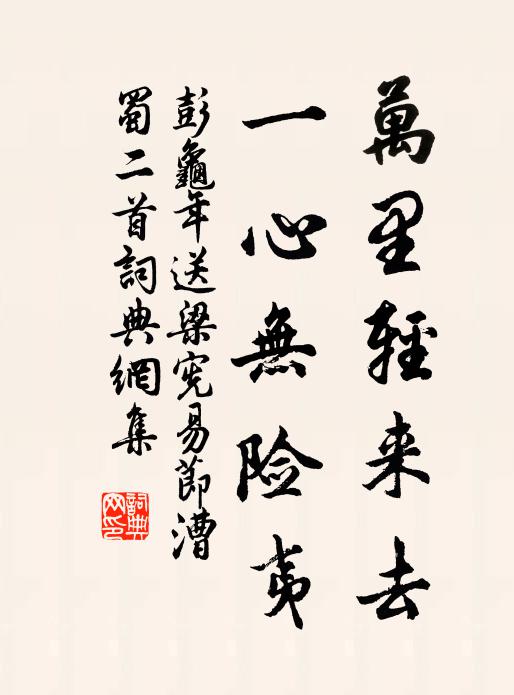 萬里輕来去
一心無险夷
彭龜年送梁宪易節漕
蜀二首詞典網集
詞典
网印